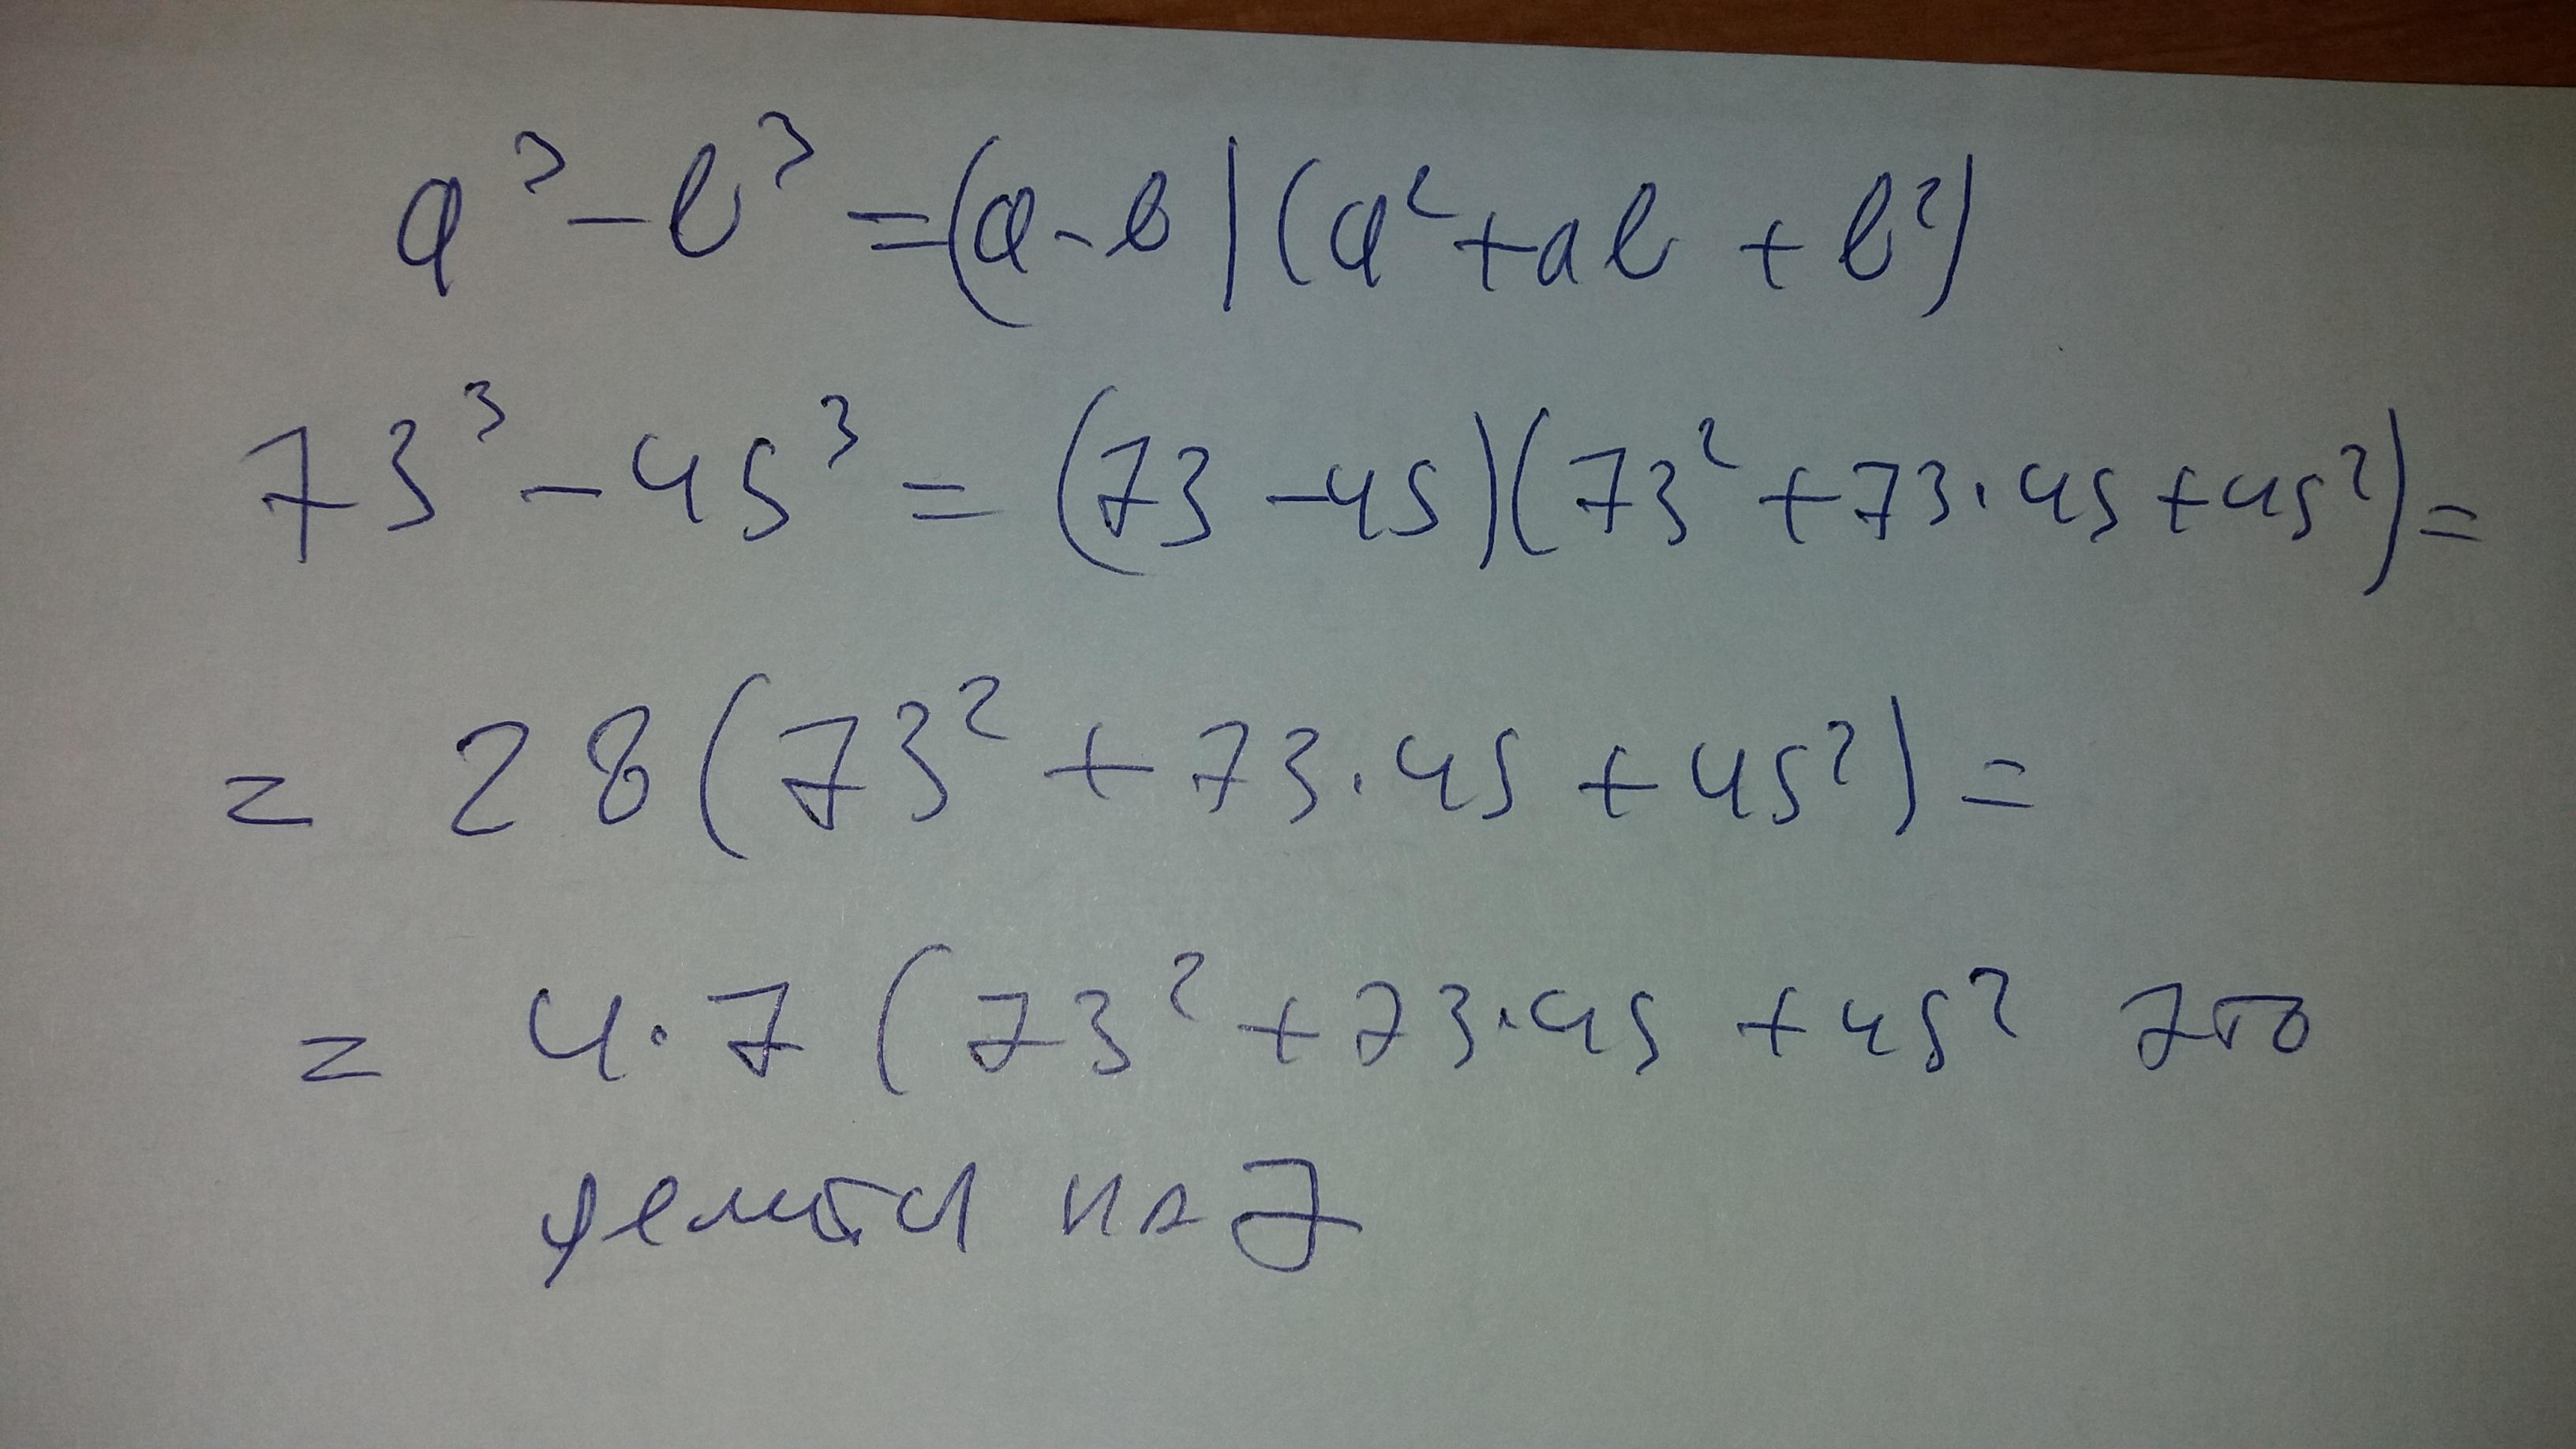 a³ - b³ = (a - b)(a² + ab + b²)
73³ - 45³ = (73 - 45)(73² + 73·45 + 45²) =
= 28(73² + 73·45 + 45²) =
= 4·7(73² + 73·45 + 45² это
делится на 7